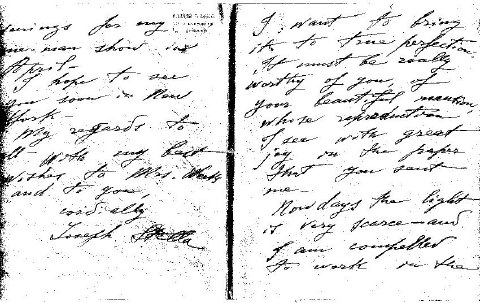 for my
man show in
April.
I hope to see
you soon in New
York.
My regards to
all with my best
wishes to Mrs. Weeks
and to you
cordially
Joseph Stella
I want to bring
it to true perfection.
It must be really
worthy of you, of
your beautiful mansion,
whose reproduction
I see with great
joy on the paper
that you sent
me.
Now days the light
is very scarce - and
I am compelled
to work on the